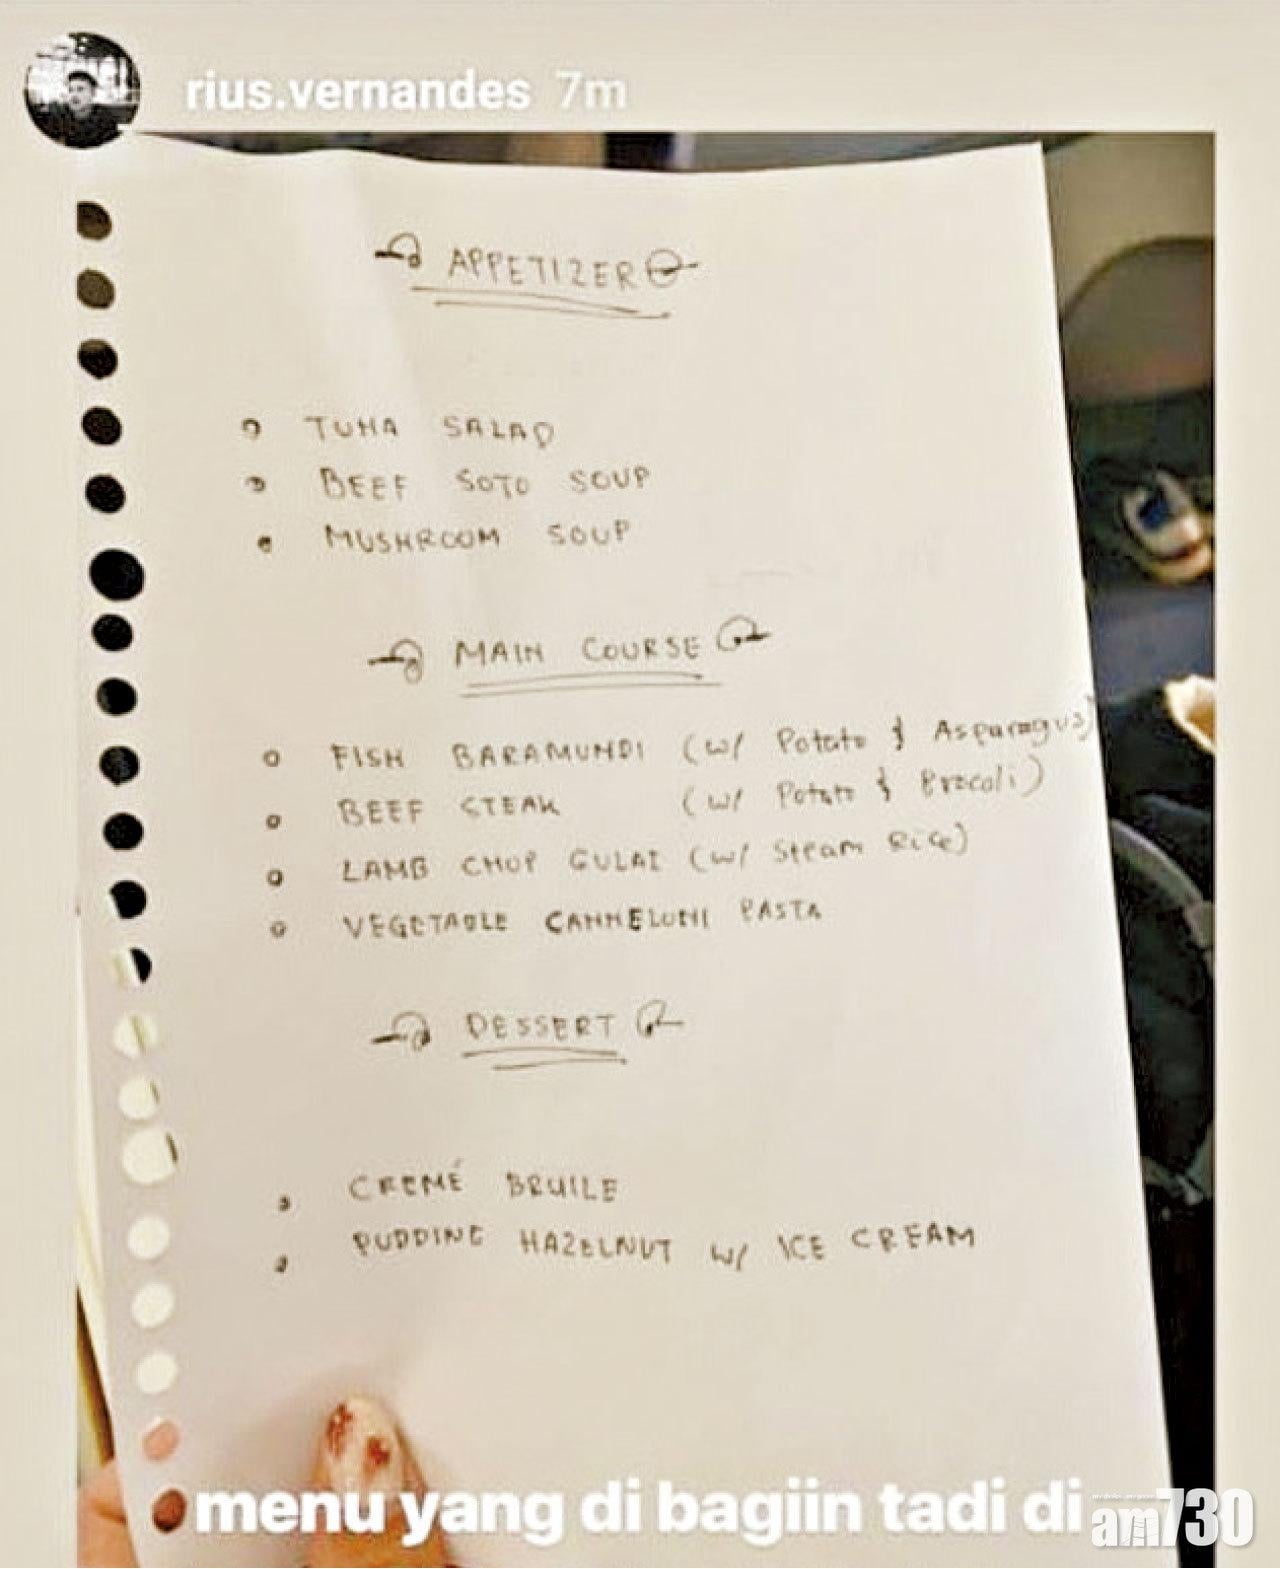 rius.vernandes 7m
APPETIZER
TUNA SALAD
BEEF SOTO SOUP
MUSHROOM SOUP
MAIN COURSE
FISH BARAMUNDI (w/ Potato & Asparagus)
BEEF STEAK (w/ Potato & Brocoli)
LAMB CHOP GULAI (w/ Steam Rice)
VEGETABLE CANNELONI PASTA
DESSERT
CREMÉ BRUILE
PUDDING HAZELNUT w/ ICE CREAM
menu yang di bagiin tadi di
am730